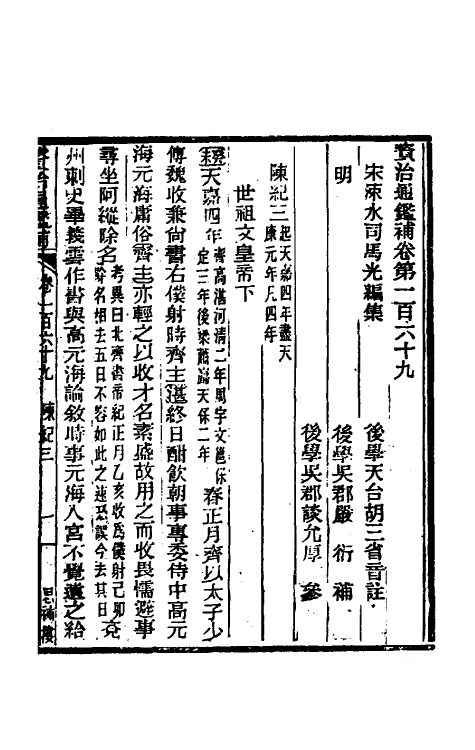 資治通鑑補卷第一百六十九
宋涑水司馬光編集　後學天台胡三省音註
明　後學吳郡嚴衍補
後學吳郡談允厚參
陳紀三起天嘉四年盡天康元年凡四年
世祖文皇帝下
天嘉四年齊高湛河清二年周宇文邕保定三年後梁蕭巋天保二年春正月齊以太子少
傅魏收兼尙書右僕射時齊主湛終日酣飲朝事專委侍中高元
海元海庸俗齊主亦輕之以收才名素盛故用之而收畏懦避事
尋坐阿縱除名考異曰北齊書帝紀正月乙亥收爲僕射己卯除名相去五日不容如此之速恐誤今去其日兗
州刺史畢義雲作書與高元海論敘時事元海入宮不覺遺之給
卷一百六十九　陳紀三　一　思補樓